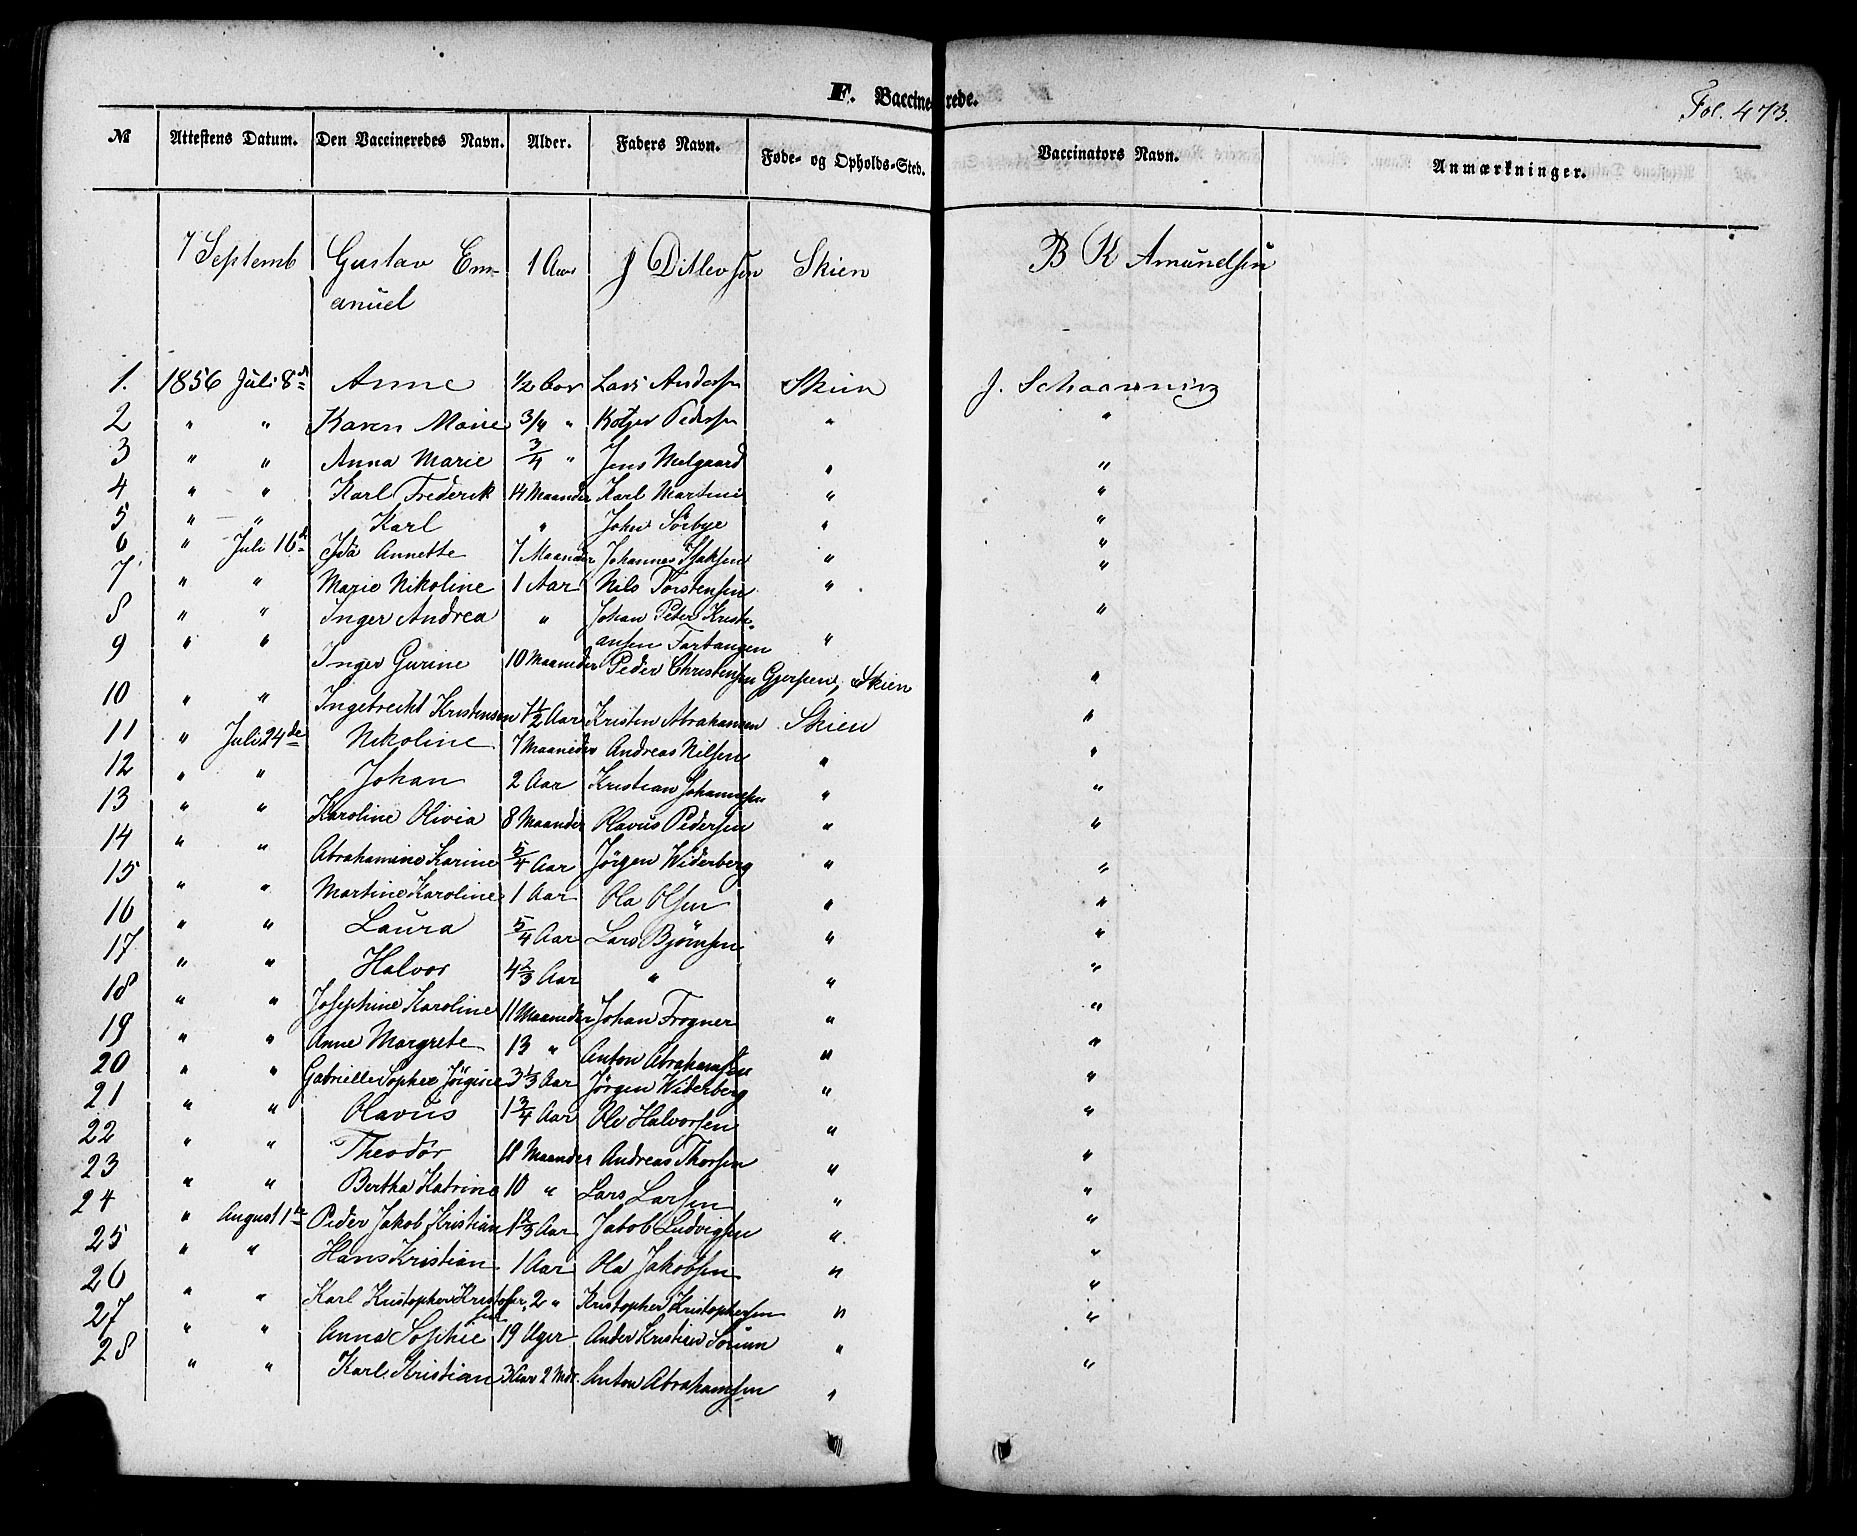 F. Vaccinerede.
Fol. 473.
№ Attestens Datum. Den Vaccineredes Navn. Alder. Faders Navn. Føde- og Opholds-Sted. Vaccinators Navn. Anmærkninger.
7 Septemb Gustav Em- 1 Aar J Ditlevsen Skien B K Amundsen
anuel
1. 1856 Juli 8de Anne 1/2 Aar Lars Andersen Skien J. Schaanning
2 " " Karen Marie 3/4 " Pedersen " "
3 " " Anna Marie 3/4 " Jens Melgaard " "
4 " " Karl Frederik 14 Maaneder Karl Martini " "
5 " " Karl " John Sörbye " "
6 " Juli 16de Ida Annette 7 Maaneder Johannes Isaksen " "
7 " " Marie Nikoline 1 Aar Nils Torstensen " "
8 " " Inger Andrea " Johan Peter Kristi- "
ansen Fartangen "
9 " " Inger Gurine 10 Maaneder Peder Christensen Gjerpen, Skien "
10 " " Ingebrecht Kristensen 1 1/2 Aar Kristen Abrahamsen Skien "
11 " Juli 24de Nikoline 7 Maaneder Andreas Nilsen " "
12 " " Johan 2 Aar Kristian Johannesen " "
13 " " Karoline Olivia 8 Maaneder Olavus Pedersen " "
14 " " Abrahamine Karine 5/4 Aar Jörgen Widerberg " "
15 " " Martine Karoline 1 Aar Ola Olsen " "
16 " " Laura 5/4 Aar Lars Björnsen " "
17 " " Halvor 4 2/3 Aar " " "
18 " " Josephine Karoline 11 Maaneder Johan Frogner " "
19 " " Anne Margrete 13 " Anton Abrahamsen " "
20 " " Gabrielle Sophie Jörgine 3 1/3 Aar Jörgen Widerberg " "
21 " " Olavus 1 3/4 Aar Ole Halvorsen " "
22 " " Theodor 11 Maaneder Andreas Thorsen " "
23 " " Bertha Katrine 10 " Lars Larsen " "
24 " August 1te Peder Jakob Kristian 1 2/3 Aar Jakob Ludvigsen " "
25 " " Hans Kristian 1 Aar Ola Jakobsen " "
26 " " Karl Kristopher Kristofer- 2 " Kristopher Kristophersen " "
sen
27 " " Anna Sophie 19 Uger Ander Kristian Sorum " "
28 " " Karl Kristian 3 Aar 2 Mdr. Anton Abrahamsen " "